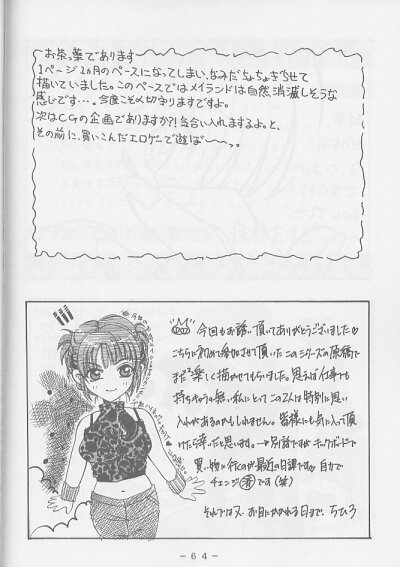 お茶っ葉であります
1ページ1ヵ月のペースになってしまい、なみだちょちょぎらせて
描いていました。このペースではメイランドは自然消滅しそうな
感じです…。今度こそ〆切守りますですよ。
次はCGの企画でありますか?!気合い入れますするよ。と、
その前に、買いこんだエロゲーで遊ば〜〜っ。
今回もお誘い頂いてありがとうございました
こちらに初めて参加させて頂いたこのシリーズの原稿で
また楽しく描かせてもらいました。思えば仕事でも
持ちキャラの無い私にとってこの2人は特別に思い
入れがあるのかもしれません。皆様にも気に入って頂
けたら幸いだと思います。→別話ですがキックボードで
買い物に行くのが最近の日課です 自力で
チェンジ です(笑)
それでは又、お目にかかれる日まで。ちひろ
－64－